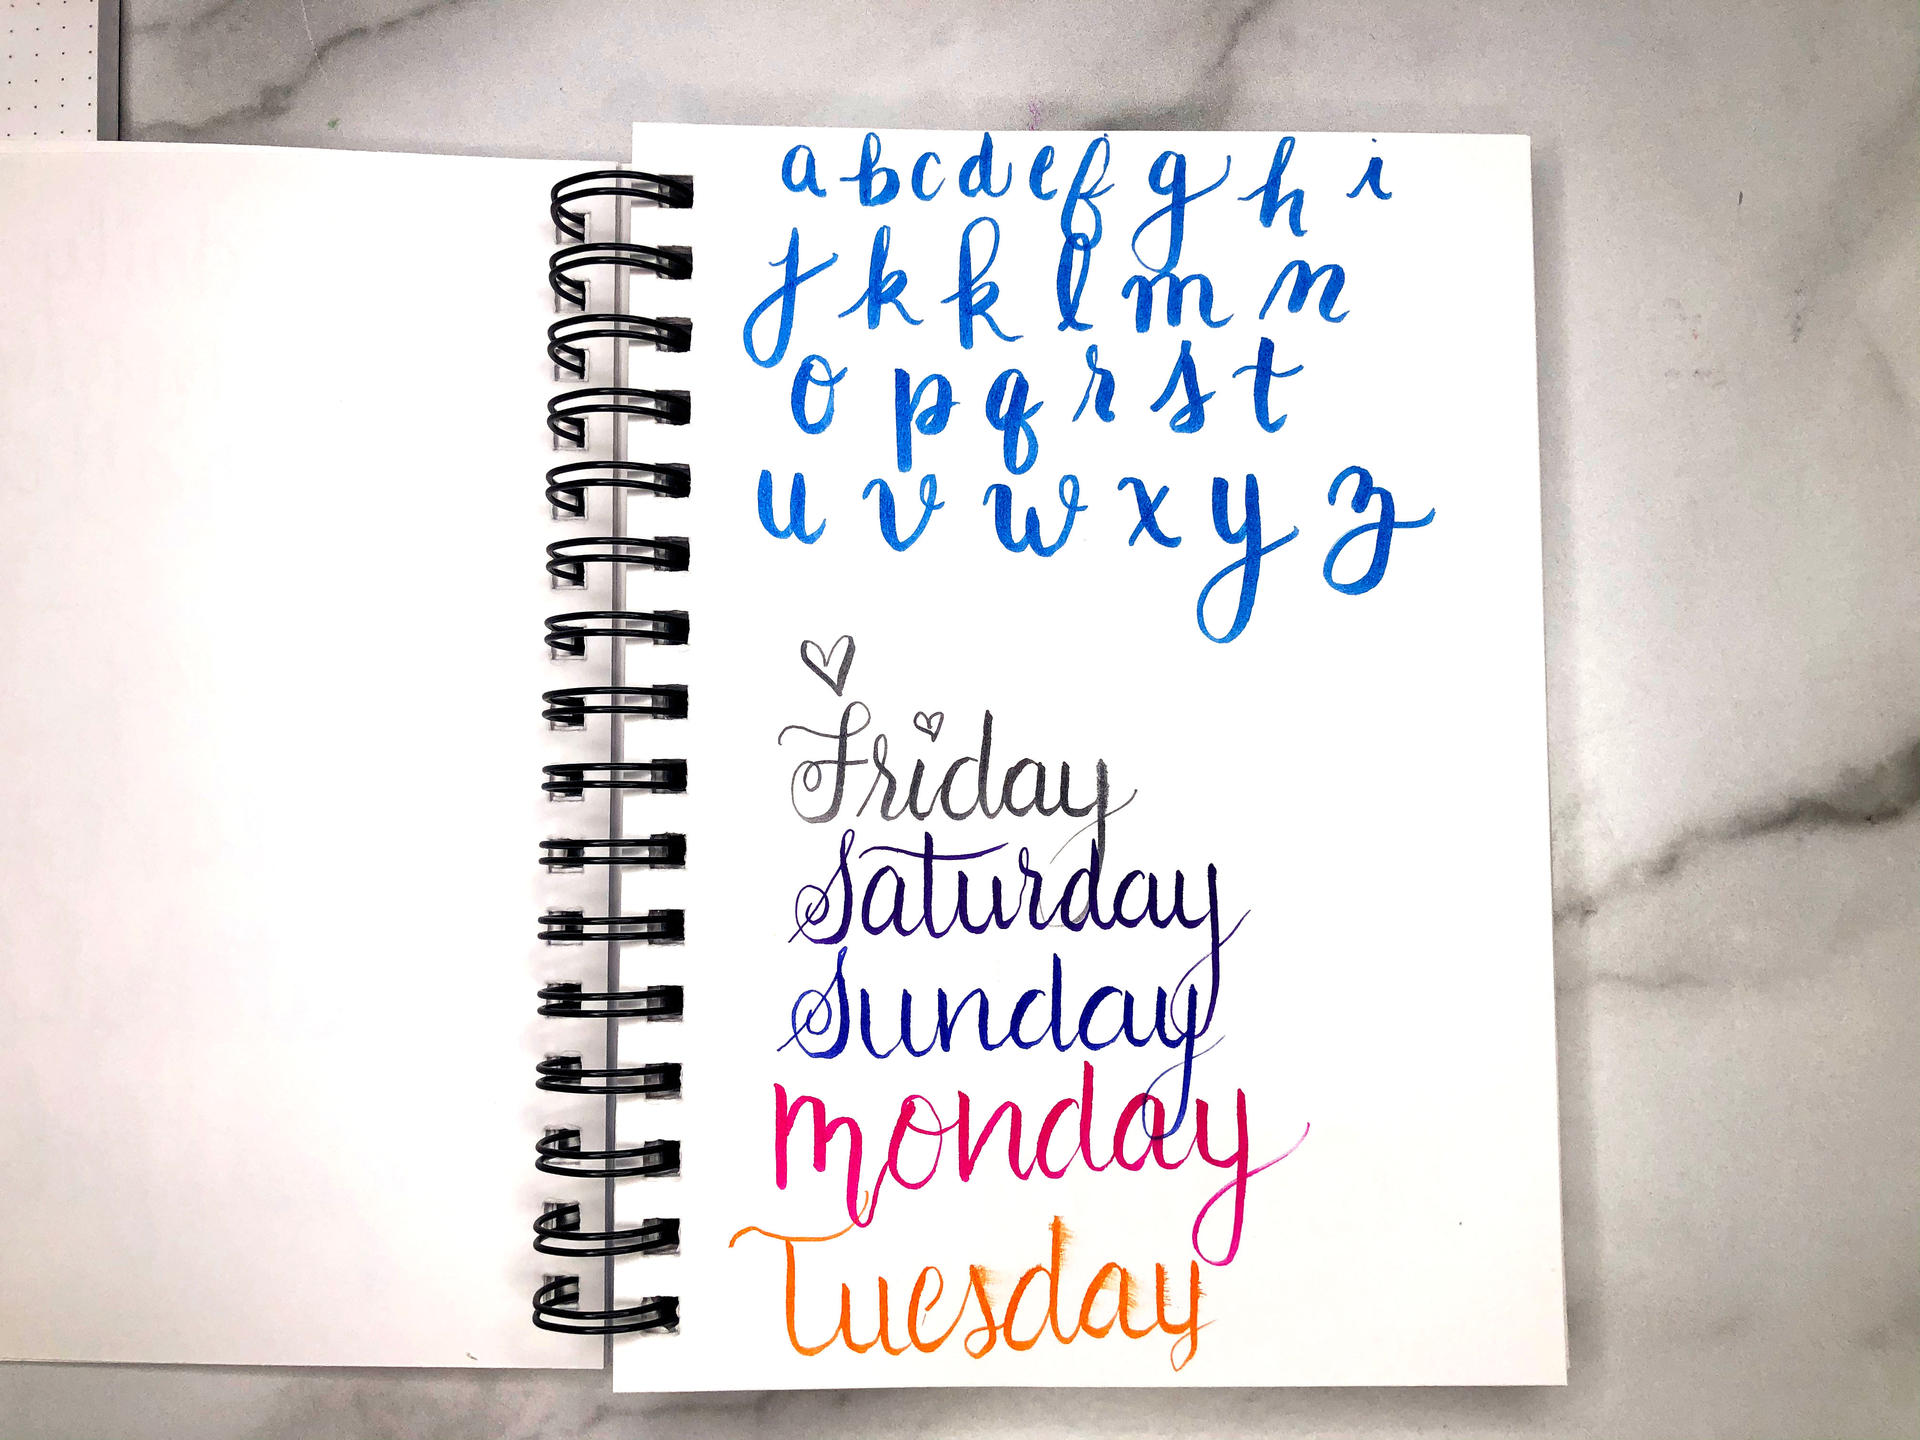 a b c d e f g h i
j k k l m n
o p q r s t
u v w x y z
Friday
Saturday
Sunday
monday
Tuesday